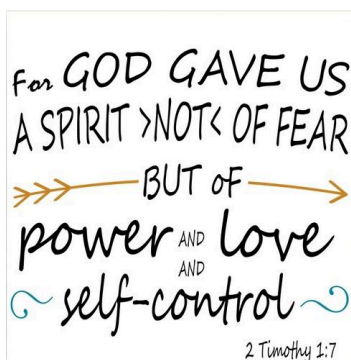 For GOD GAVE US
A SPIRIT >NOT< OF FEAR
BUT oF
power AND love
AND
self-control
2 Timothy 1:7